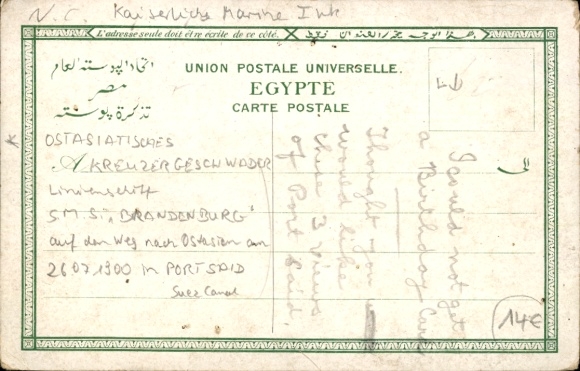 Kaiserliche Marine
L'adresse seule doit être écrite de ce côté.
اتحاد البوسته العام
مصر
تذكرة بوسته
UNION POSTALE UNIVERSELLE.
EGYPTE
CARTE POSTALE
الى
OSTASIATISCHES
KREUZERGESCHWADER
Linienschiff
S.M.S. „BRANDENBURG"
auf dem Weg nach Ostasien am
26 07 1900 in PORT SAID
Suez Canal
I could not get
a Birthday Card
Thought you
would like
these 3 views
of Port Said.
14€